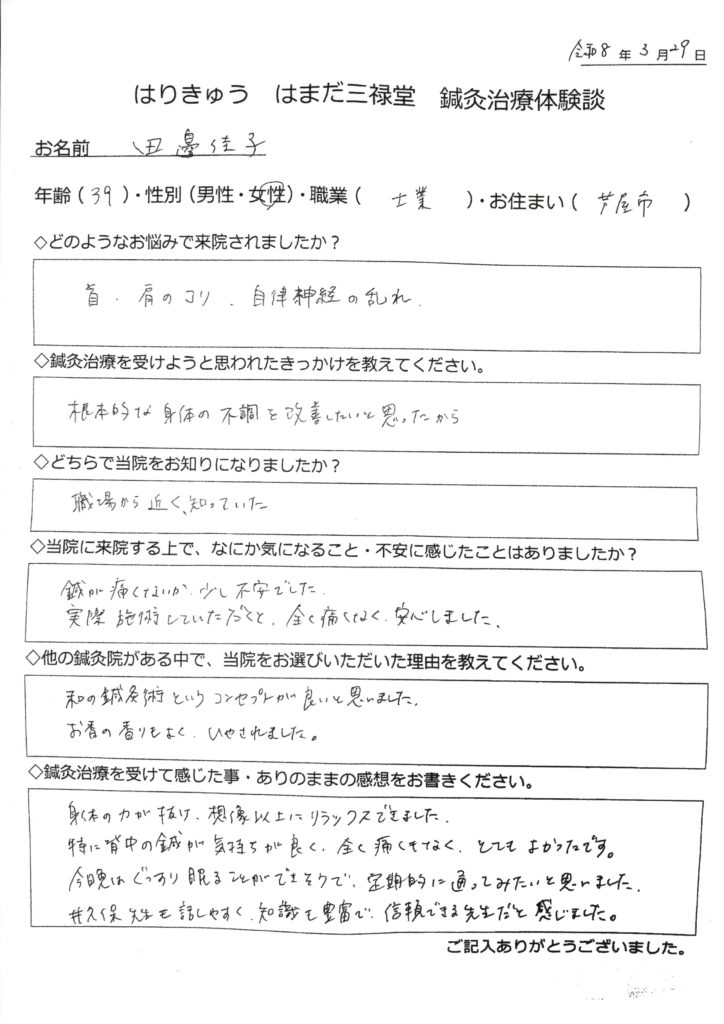 令和8年3月29日
はりきゅう　はまだ三禄堂　鍼灸治療体験談
お名前　田邊佳子
年齢（39）・性別（男性・女性）・職業（　士業　）・お住まい（　芦屋市　）
◇どのようなお悩みで来院されましたか？
首、肩のコリ、自律神経の乱れ
◇鍼灸治療を受けようと思われたきっかけを教えてください。
根本的な身体の不調を改善したいと思ったから
◇どちらで当院をお知りになりましたか？
職場から近く、知っていた
◇当院に来院する上で、なにか気になること・不安に感じたことはありましたか？
鍼が痛くないか、少し不安でした。
実際施術していただくと、全く痛くなく、安心しました。
◇他の鍼灸院がある中で、当院をお選びいただいた理由を教えてください。
和の鍼灸術というコンセプトが良いと思いました。
お香の香りもよく、いやされました。
◇鍼灸治療を受けて感じた事・ありのままの感想をお書きください。
身体の力が抜け、想像以上にリラックスできました。
特に背中の鍼が気持ちが良く、全く痛くもなく、とてもよかったです。
今晩はぐっすり眠ることができそうで、定期的に通ってみたいと思いました。
井久保先生も話しやすく、知識も豊富で、信頼できる先生だと感じました。
ご記入ありがとうございました。